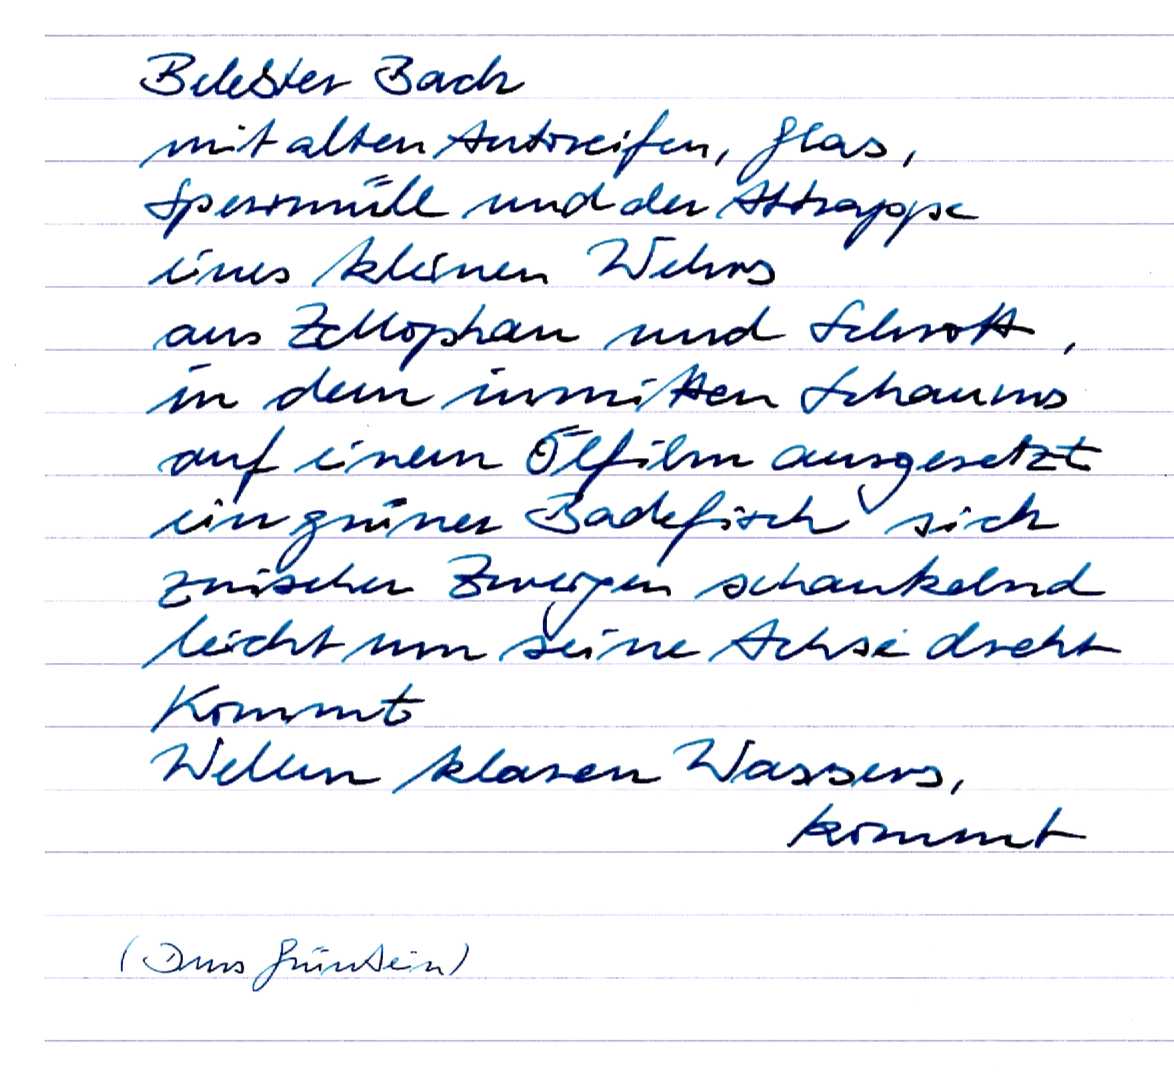 Belebter Bach
mit alten Autoreifen, Glas,
Sperrmüll und der Attrappe
eines kleinen Wehrs
aus Zellophan und Schrott,
in dem inmitten Schaums
auf einem Ölfilm ausgesetzt
ein grüner Badefisch sich
zwischen Zwergen schaukelnd
leicht um seine Achse dreht
Kommt
Wellen klaren Wassers,
kommt